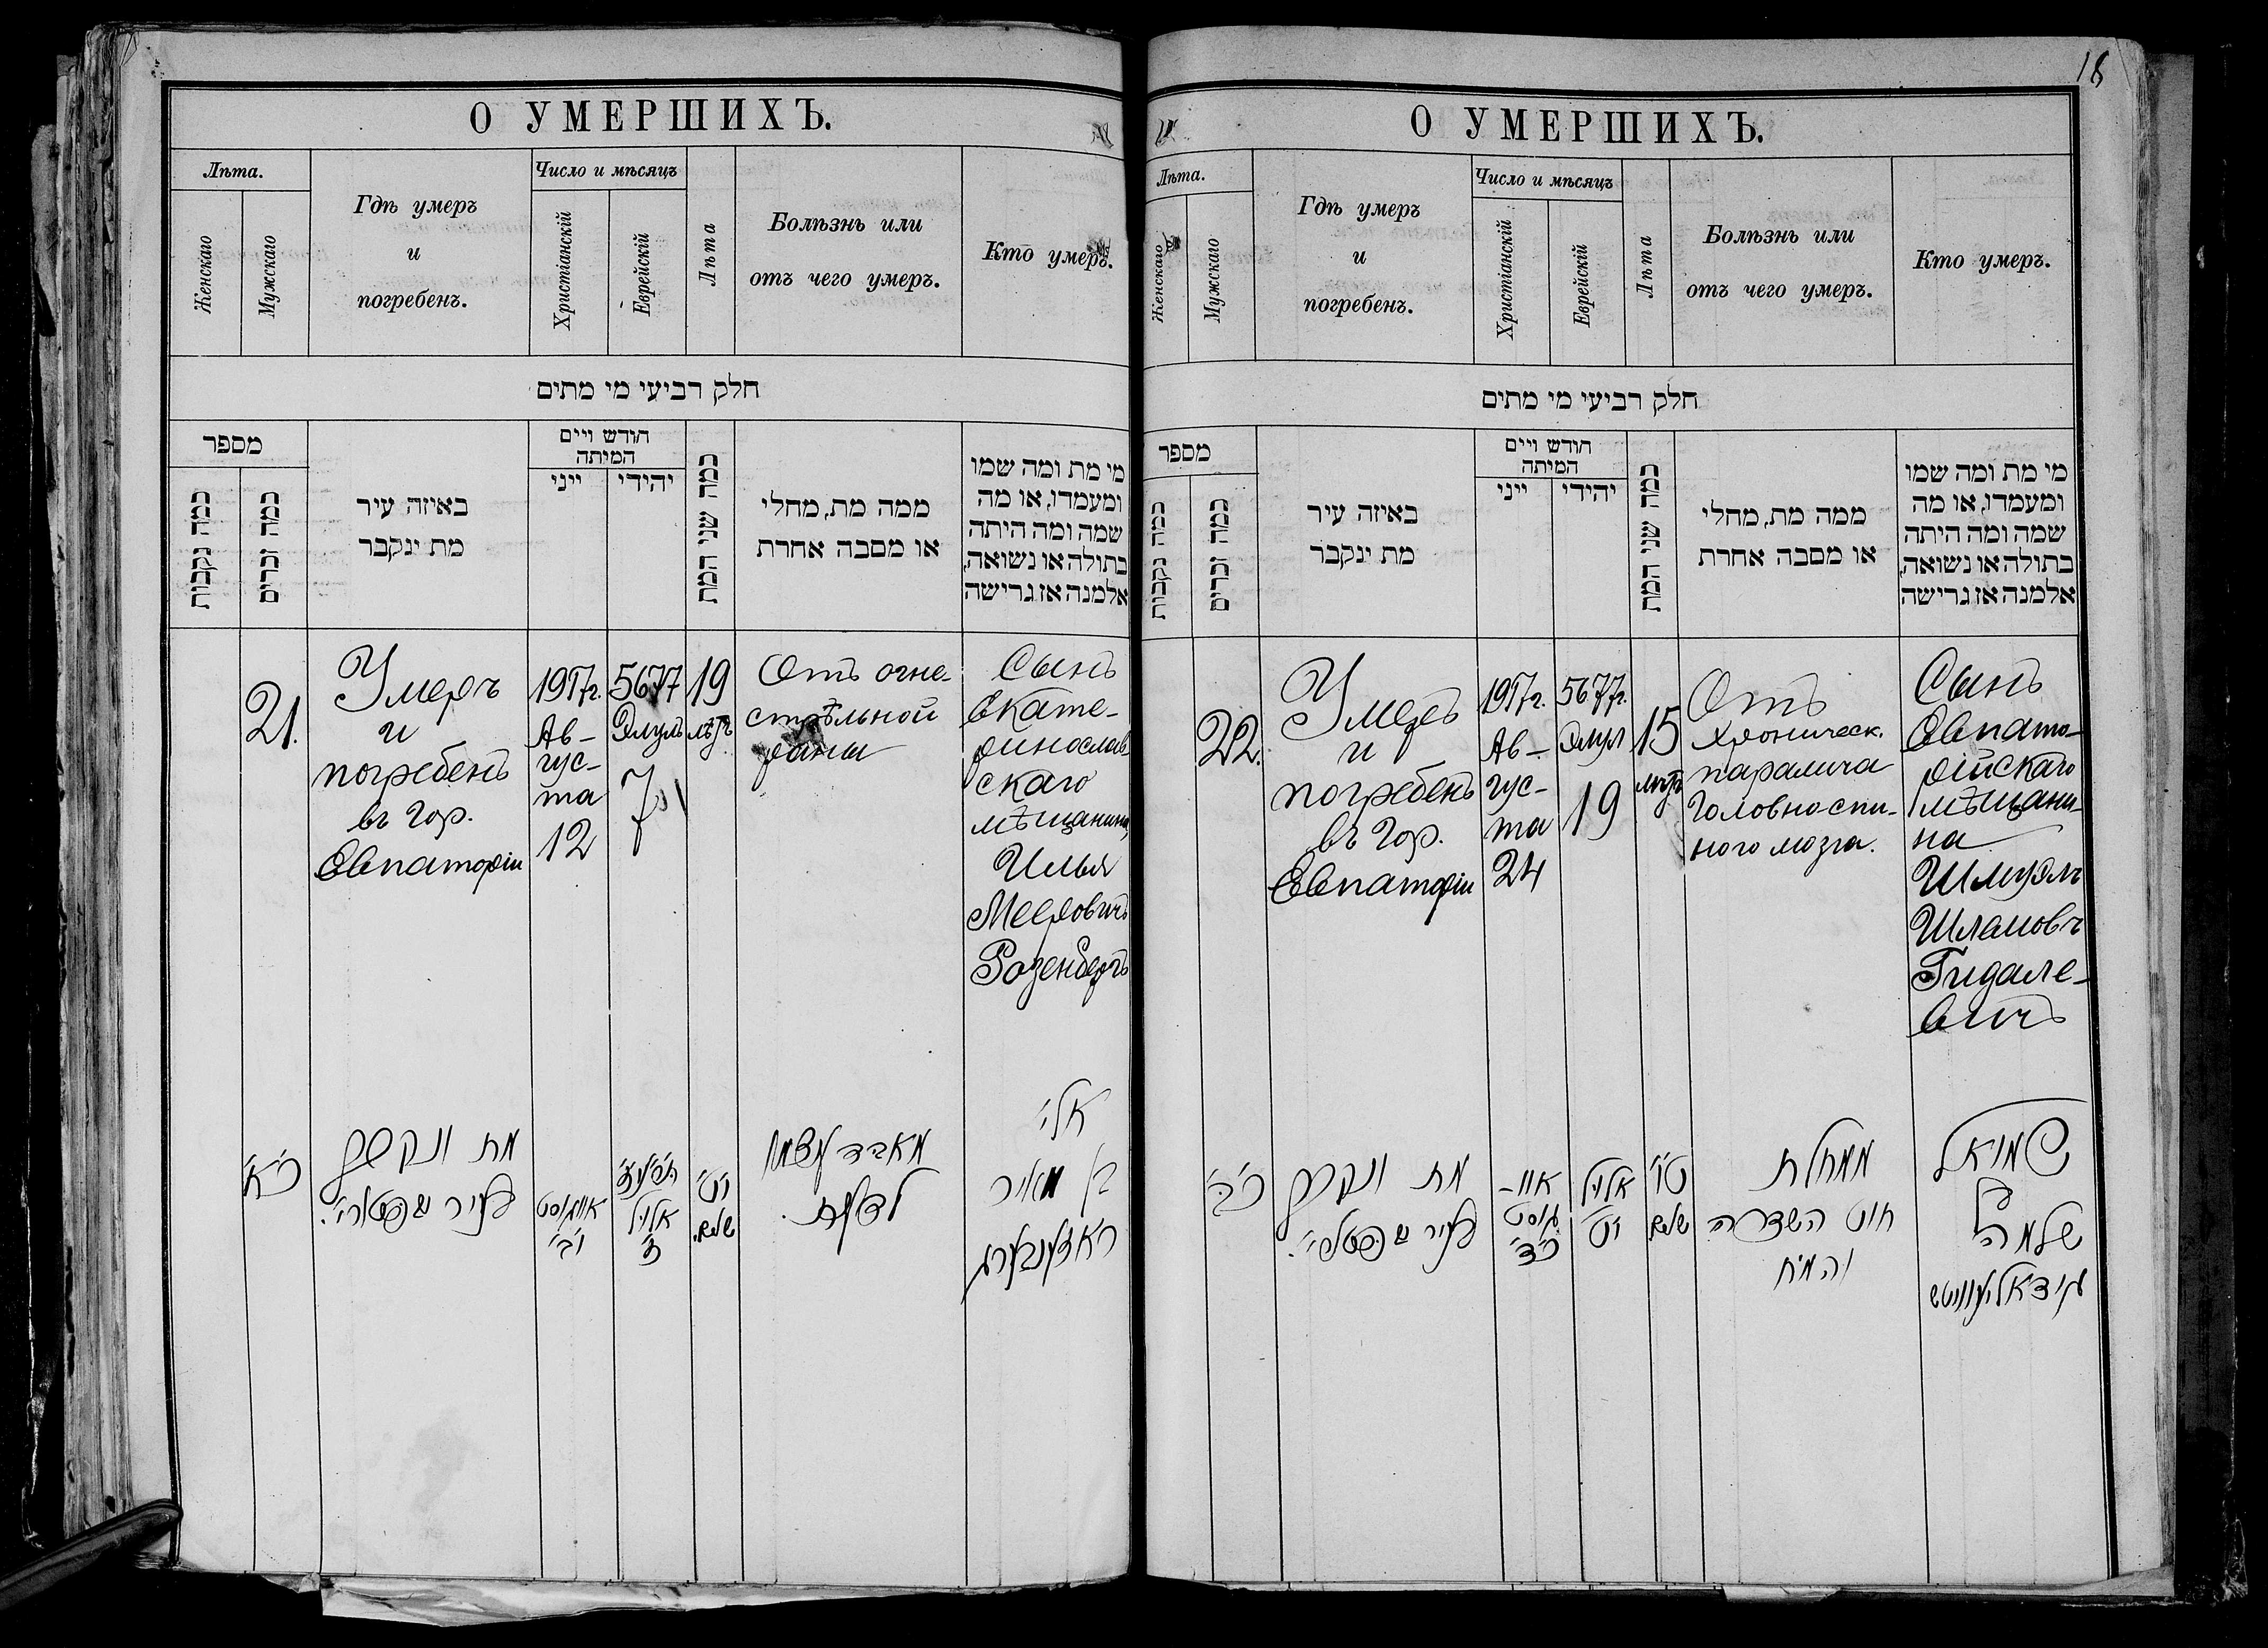 18
О УМЕРШИХЪ.
Лѣта.
Женскаго
Мужскаго
Гдѣ умеръ
и
погребенъ.
Число и мѣсяцъ
Христіанскій
Еврейскій
Лѣта
Болѣзнь или
отъ чего умеръ.
Кто умеръ.
חלק רביעי מי מתים
מספר
כמה נקבות
כמה זכרים
באיזה עיר
מת ינקבר
חודש ויים
המיתה
ייני
יהידי
כמה שני המת
ממה מת, מחלי
או מסבה אחרת
מי מת ומה שמו
ומעמדו, או מה
שמה ומה היתה
בתולה או נשואה,
אלמנה אז גרישה
21.
Умеръ
и
погребенъ
въ гор.
Евпаторіи
1917г.
Ав-
гус-
та
12
5677
Элулъ
7
19
лѣтъ
Отъ огне-
стрѣльной
раны
Сынъ
Екате-
ринослав
скаго
мѣщанина
Илья
Мееровичъ
Розенбергъ
כ״א
מת ונקבר
בעיר
אווגוסט
י״ב
אלול
ז׳
י״ט
שנים
מאבד עצמו
לדעת
אלי׳
בן מאיר
ראזענבערג
О УМЕРШИХЪ.
Лѣта.
Женскаго
Мужскаго
Гдѣ умеръ
и
погребенъ.
Число и мѣсяцъ
Христіанскій
Еврейскій
Лѣта
Болѣзнь или
отъ чего умеръ.
Кто умеръ.
חלק רביעי מי מתים
מספר
כמה נקבות
כמה זכרים
באיזה עיר
מת ינקבר
חודש ויים
המיתה
ייני
יהידי
כמה שני המת
ממה מת, מחלי
או מסבה אחרת
מי מת ומה שמו
ומעמדו, או מה
שמה ומה היתה
בתולה או נשואה,
אלמנה אז גרישה
22.
Умеръ
и
погребенъ
въ гор.
Евпаторіи
1917г.
Ав-
гус-
та
24
5677г.
Элул
19
15
лѣтъ
Отъ
хроническ.
паралича
головно спи-
ного мозга.
Сынъ
Евпато-
рійскаго
мѣщани-
на
Шмуэль
Шламовъ
Гидале-
вичъ
כ״ב
מת ונקבר
בעיר
אוו-
גוסט
כ״ד
אלול
י״ט
ט״ו
שנים
ממחלת
חוט השדרה
והמוח
שמואל
בן
שלמה
גידאליעוויטש